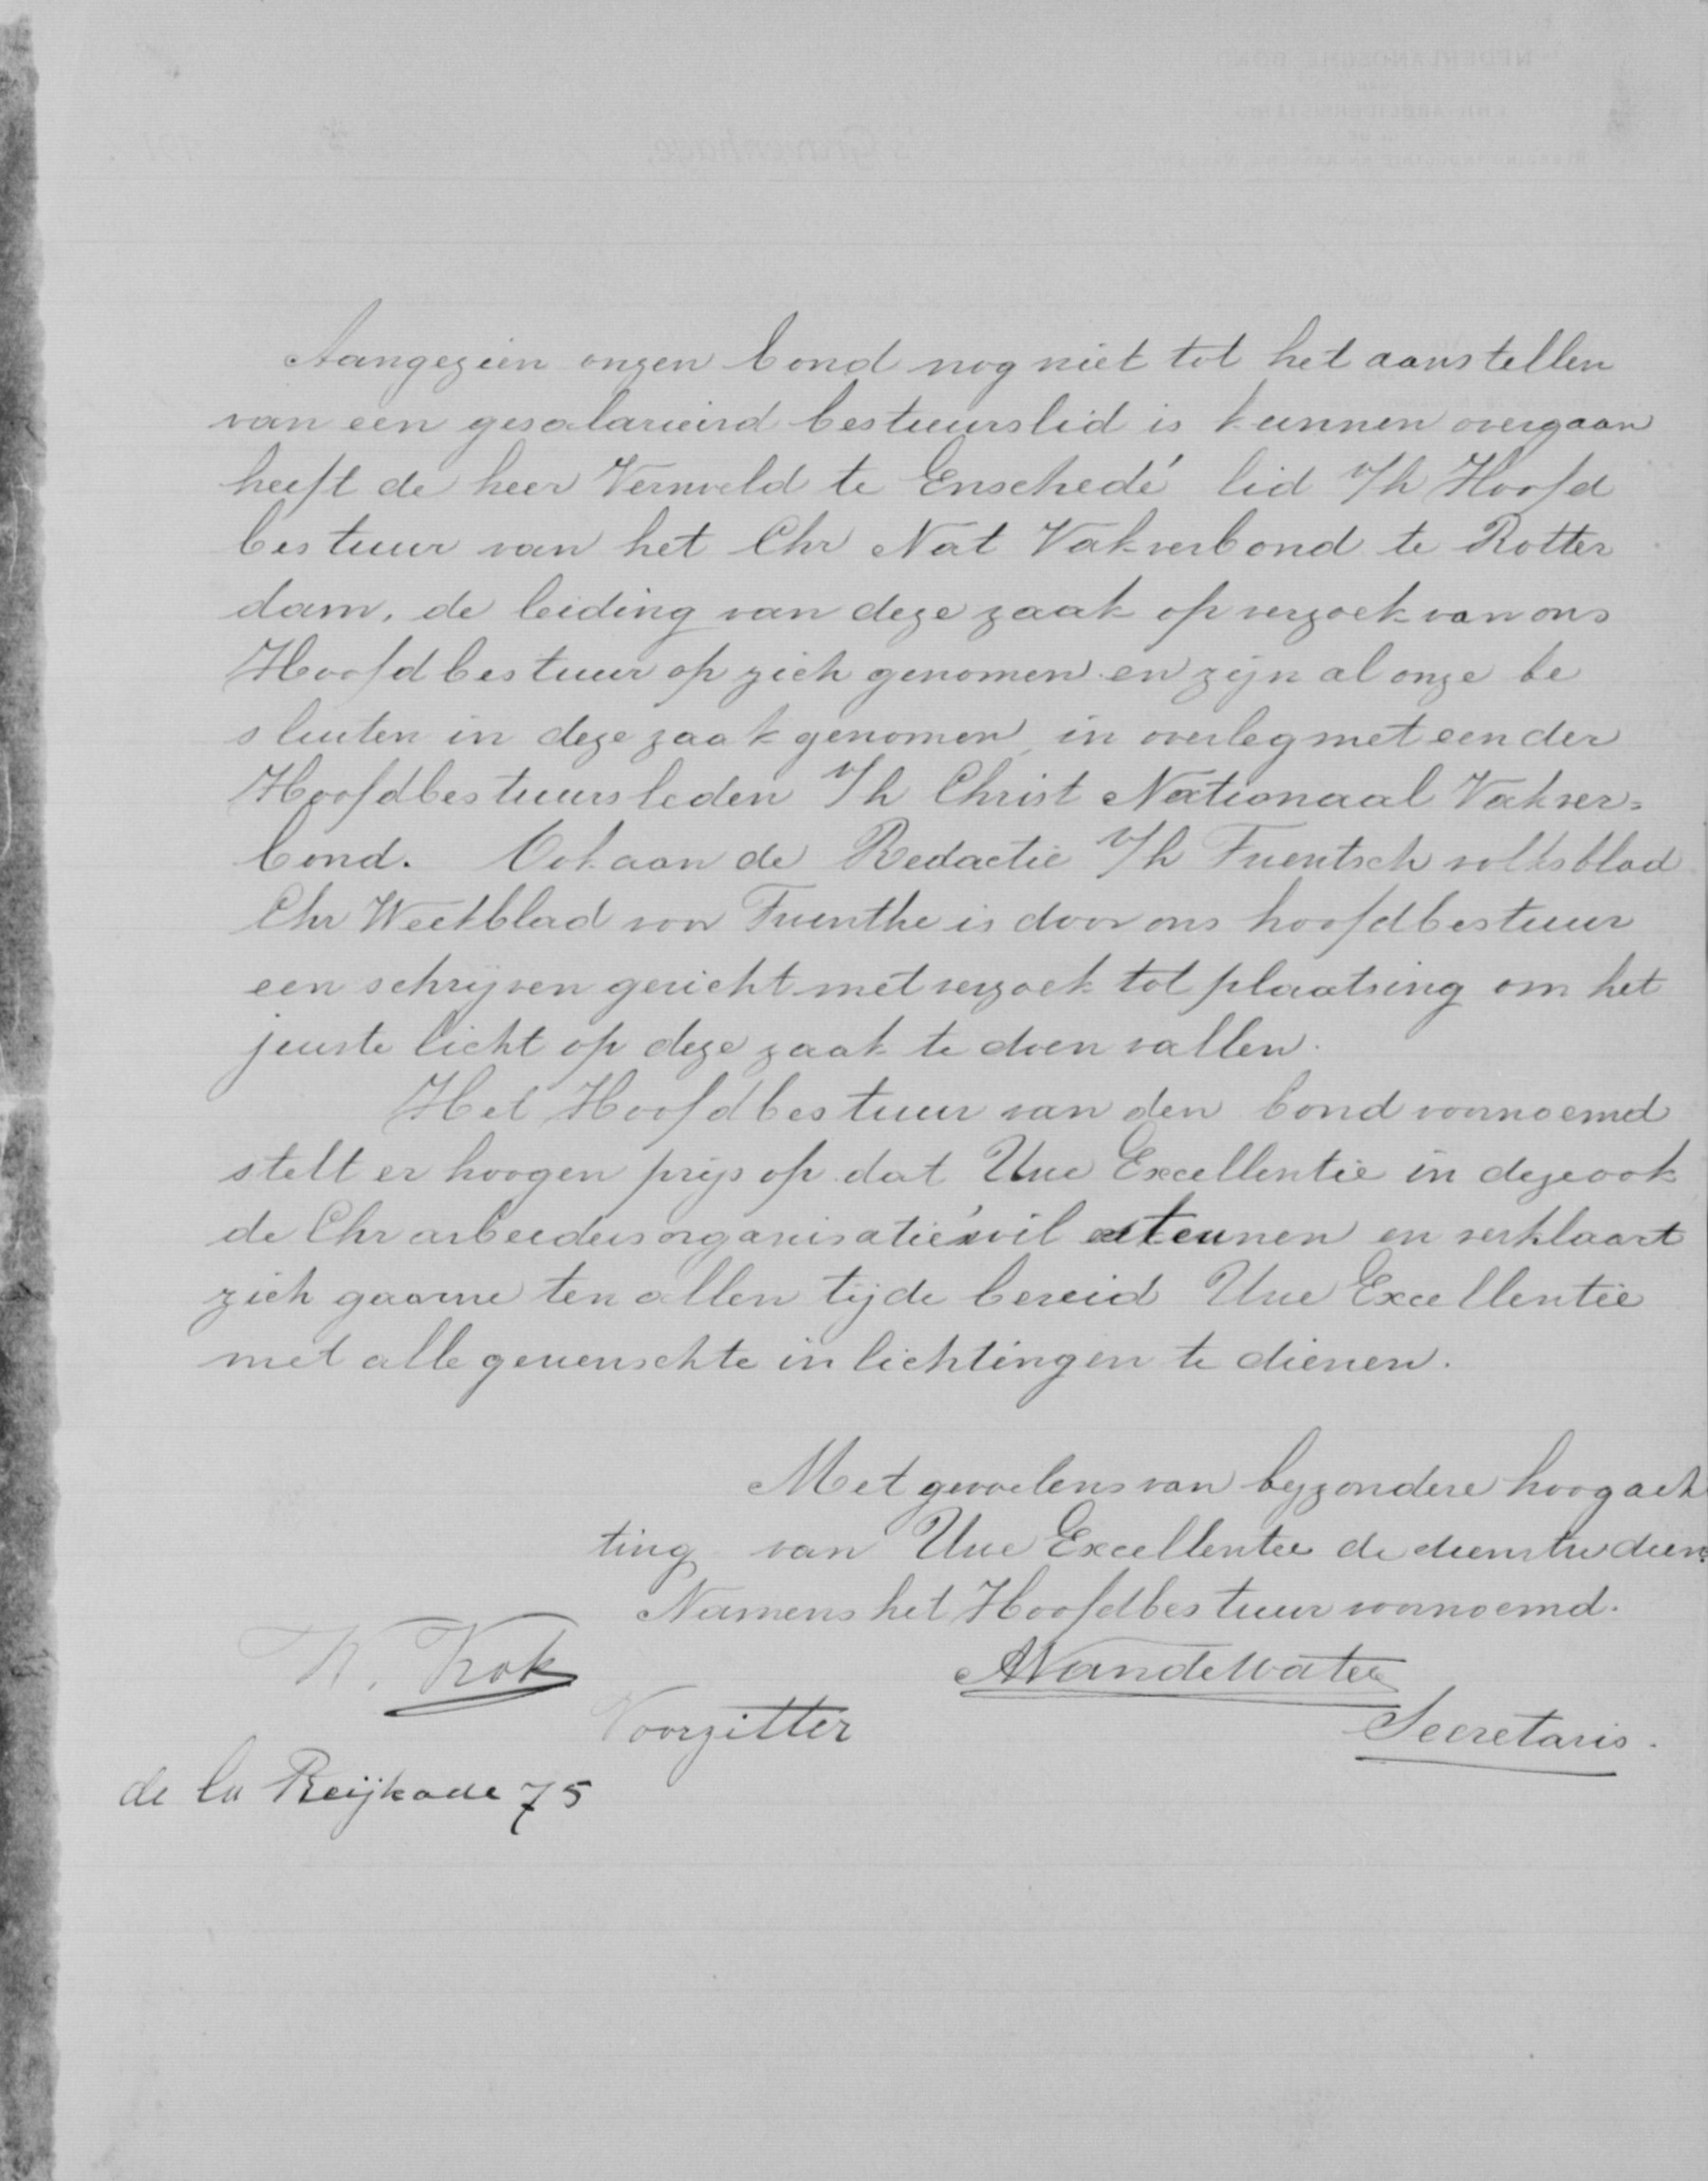 Aangezien onzen bond nog niet tot het aanstellen
van een gesalarieird bestuurslid is kunnen overgaan
heeft de heer Vernveld te Enschedé lid v/h Hoofd
bestuur van het Chr Nat Vakverbond te Rotter
dam, de leiding van deze zaak op verzoek van ons
Hoofdbestuur op zich genomen en zijn al onze be
sluiten in deze zaak genomen in overleg met een der
Hoofdbestuursleden v/h Christ Nationaal Vakver=
bond. Ook aan de Redactie v/h Twentsch volksblad
Chr Weekblad voor Twenthe is door ons hoofdbestuur
een schrijven gericht met verzoek tot plaatsing om het
juiste licht op deze zaak te doen vallen.
Het Hoofdbestuur van den bond voornoemd
stelt er hoogen prijs op dat Uwe Excellentie in deze ook
de Chr arbeidersorganisatie's wil steunen en verklaart
zich gaarne ten allen tijde bereid Uwe Excellentie
met alle gewenschte inlichtingen te dienen.
Met gevoelens van byzondere hoogach
ting van Uwe Excellentie de dienstw dien.
Namens het Hoofdbestuur voornoemd.
K. Kok
A Vandewater
Voorzitter
Secretaris.
de la Reijkade 75